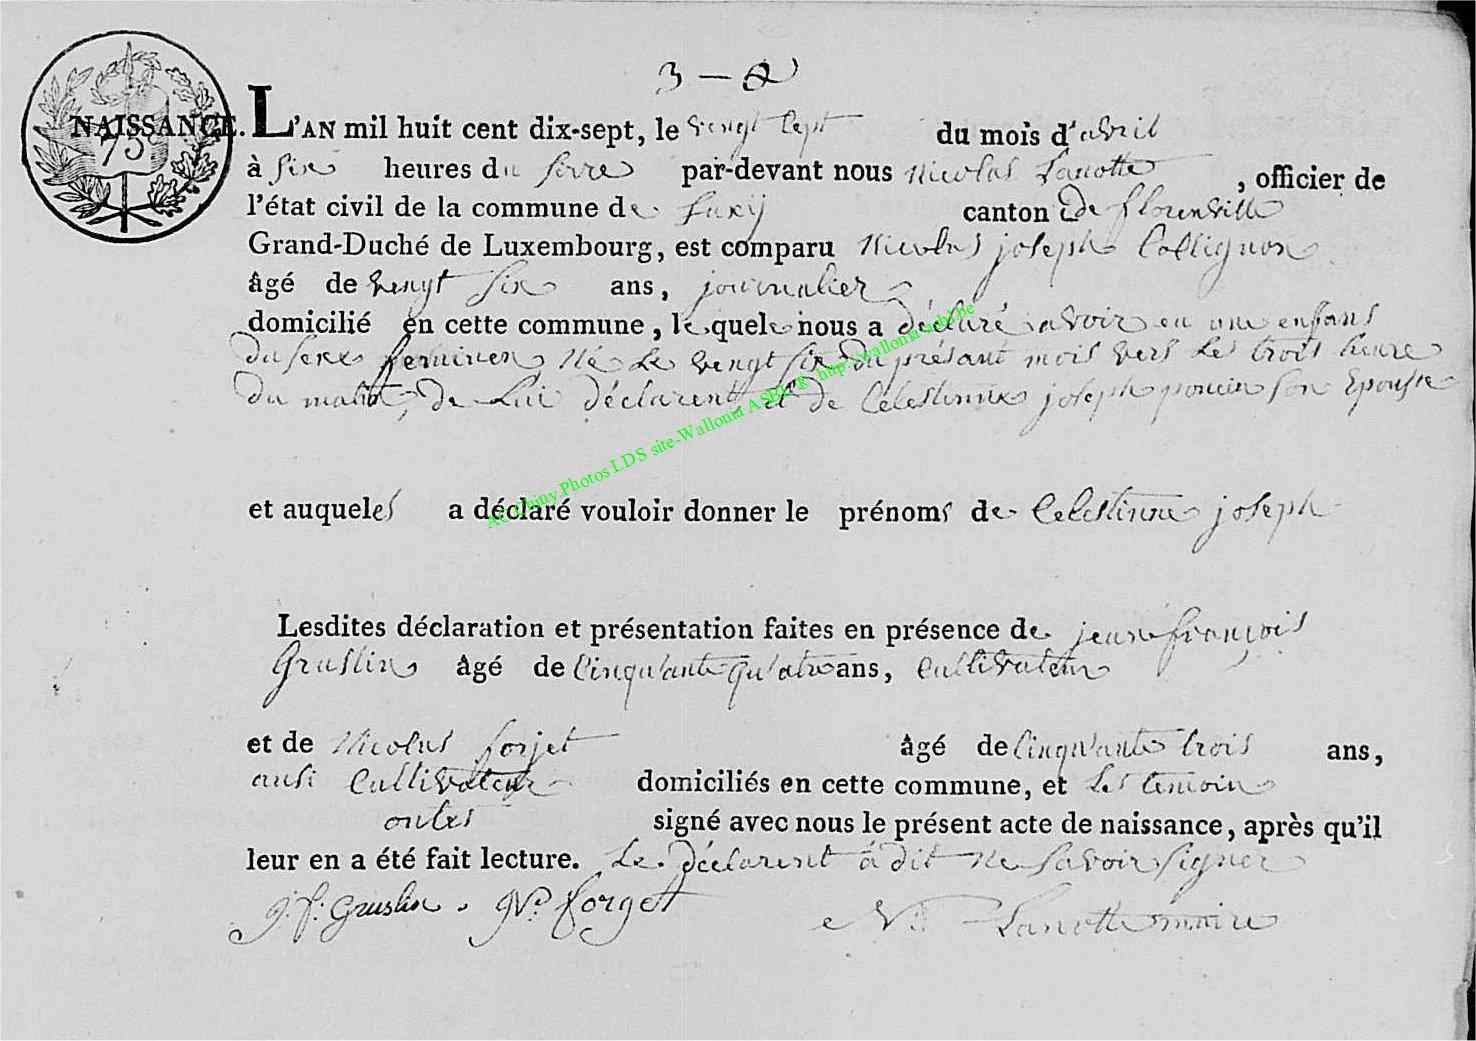 3 – 2
NAISSANCE. L'AN mil huit cent dix-sept, le vengt sept du mois d'avril
75
à six heures du serre par-devant nous Nicolas Lanotte, officier de
l'état civil de la commune de Suxÿ canton de florenville
Grand-Duché de Luxembourg, est comparu Nicolas joseph Collignon
âgé de vengt six ans, journalier
domicilié en cette commune, lequele nous a déclaré avoir eu une enfans
du sexe femininen né le vengt six du présant mois vers les trois heure
du matit, de Lui déclarent et de Celestinne joseph poncin son Epouse
et auqueles a déclaré vouloir donner le prénoms de Celestinne joseph
Lesdites déclaration et présentation faites en présence de jean françois
Gruslin âgé de Cinquante quatre ans, Cultivateur
et de Nicolas forjet âgé de Cinquante trois ans,
ausi Cultivateur domiciliés en cette commune, et Les temoin
ontes signé avec nous le présent acte de naissance, après qu'il
leur en a été fait lecture. Le déclarent à dit ne savoir signer
j. f. Gruslin. N. forget N. Lanotte maire
At Chiny Photos LDS site-Wallonia ASBL